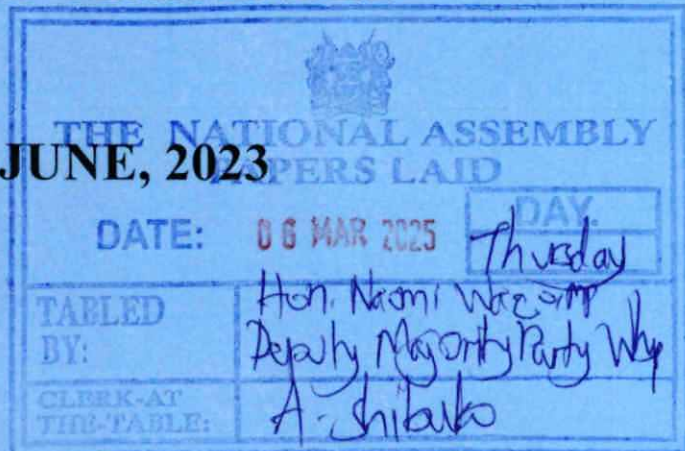 THE NATIONAL ASSEMBLY
JUNE, 2023
PAPERS LAID
DATE: 06 MAR 2025 DAY. Thursday
TABLED BY: Hon. Naomi Waqo, MP
Deputy Majority Party Whip
CLERK-AT THE-TABLE: A. Shibuko